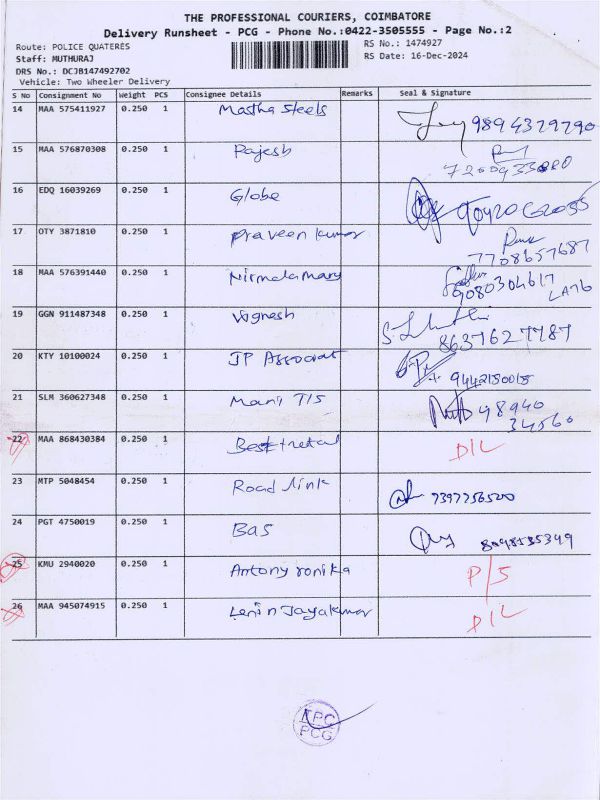 THE PROFESSIONAL COURIERS, COIMBATORE
Delivery Runsheet - PCG - Phone No.:0422-3505555 - Page No.:2
Route: POLICE QUATERES
RS No.: 1474927
Staff: MUTHURAJ
RS Date: 16-Dec-2024
DRS No.: DCJB147492702
Vehicle: Two Wheeler Delivery
S No Consignment No Weight PCS Consignee Details Remarks Seal & Signature
14 MAA 575411927 0.250 1 Mastha steels 9894379790
15 MAA 576870308 0.250 1 Rajesh
16 EDQ 16039269 0.250 1 Globe
17 OTY 3871810 0.250 1 Praveen kumar 7708657687
18 MAA 576391440 0.250 1 Nirmalamary 9080304617
19 GGN 911487348 0.250 1 Vignesh 8637627787
20 KTY 10100024 0.250 1 JP Associat 9442150015
21 SLM 360627348 0.250 1 Mani T/S 98940
34560
22 MAA 868430384 0.250 1 Best retail D/L
23 MTP 5048454 0.250 1 Road link 7397756500
24 PGT 4750019 0.250 1 Bas 8098135349
25 KMU 2940020 0.250 1 Antony ronika P/S
26 MAA 945074915 0.250 1 Lenin Jayakumar D/L
TPC
PCG